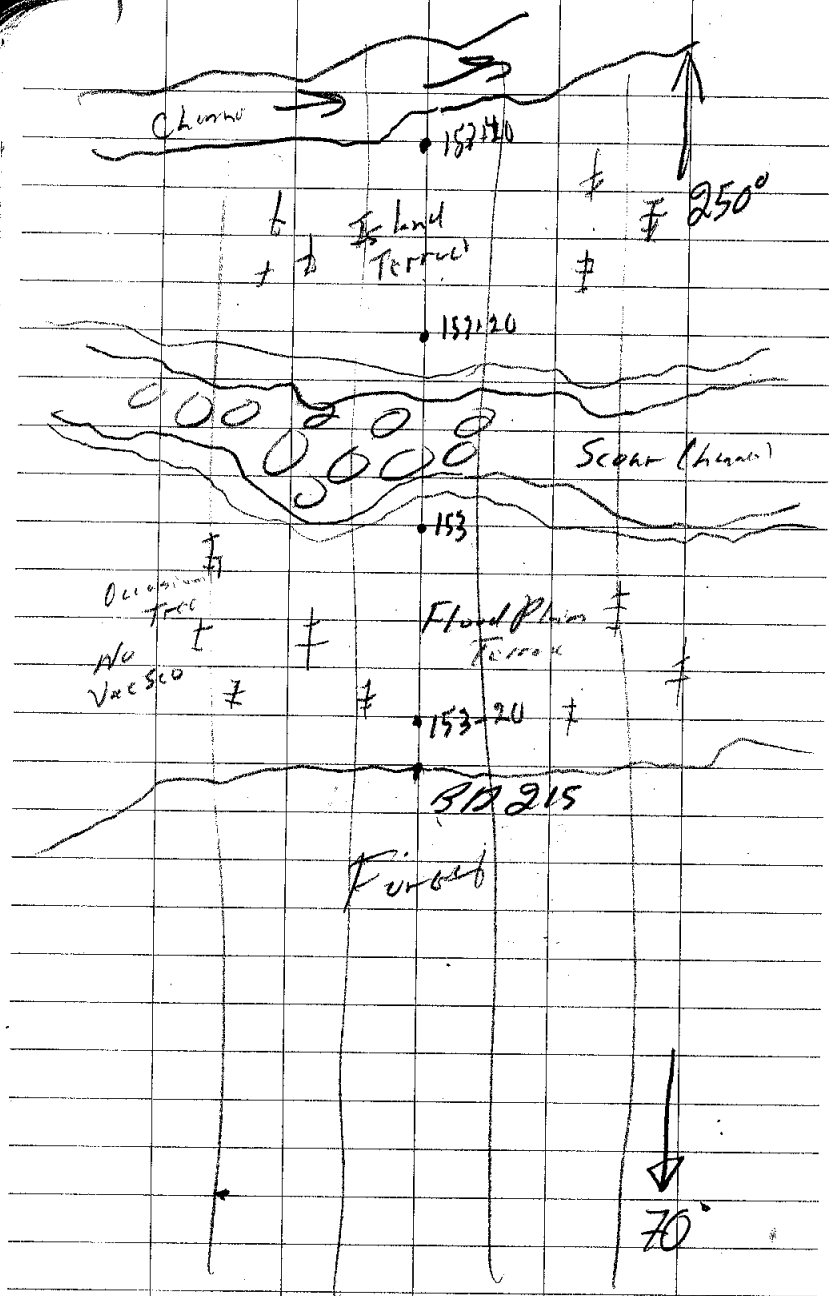 Channel
153+40
250°
Island
Terrace
153+20
Scour Channel
153
Occasional
Tree
Flood Plain
Terrace
No
153-20
BD 215
Forest
70°